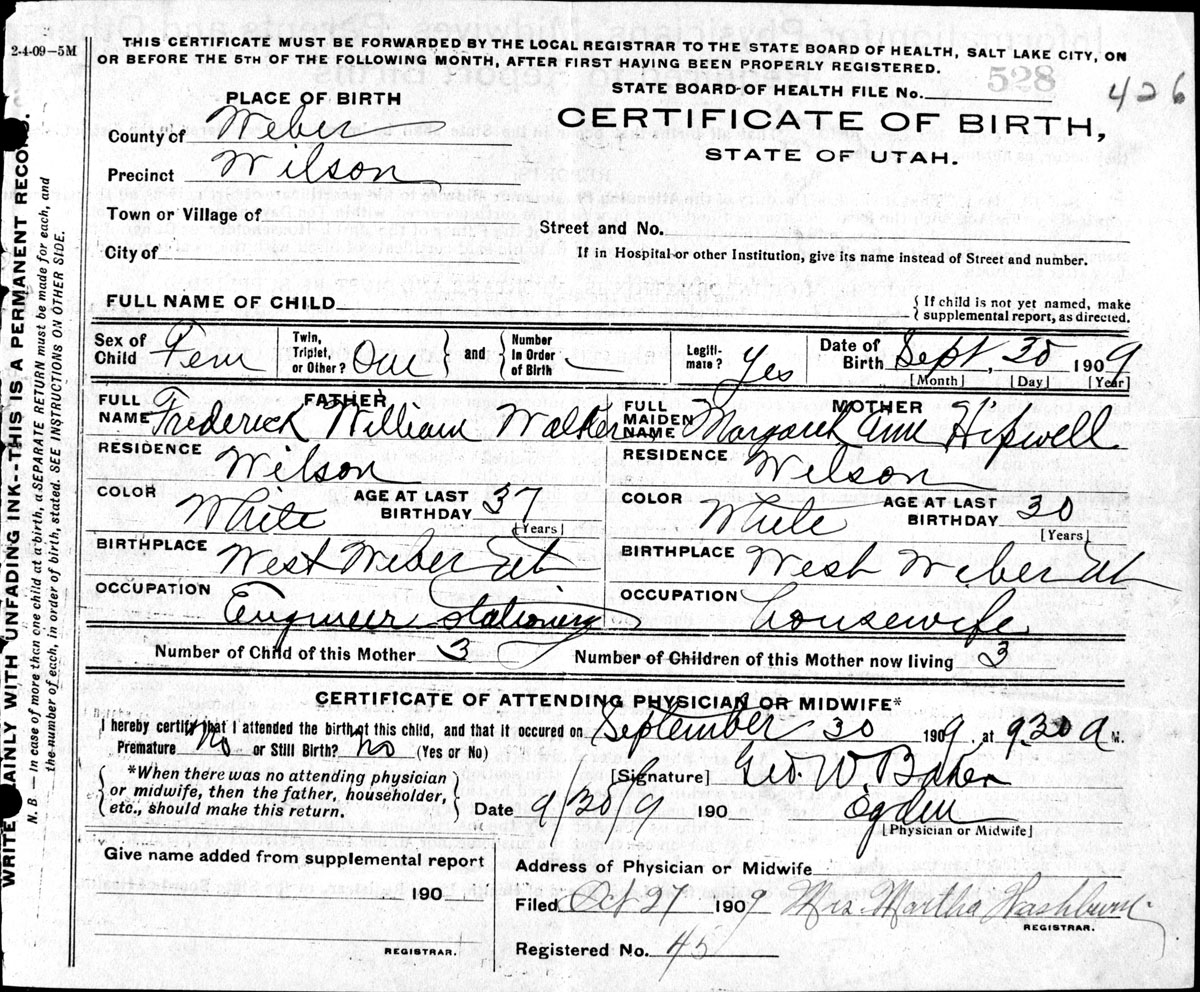 2-4-09-5M
THIS CERTIFICATE MUST BE FORWARDED BY THE LOCAL REGISTRAR TO THE STATE BOARD OF HEALTH, SALT LAKE CITY, ON
OR BEFORE THE 5TH OF THE FOLLOWING MONTH, AFTER FIRST HAVING BEEN PROPERLY REGISTERED.
STATE BOARD OF HEALTH FILE No. 528 426
PLACE OF BIRTH
CERTIFICATE OF BIRTH,
STATE OF UTAH.
County of Weber
Precinct Wilson
Town or Village of
Street and No.
City of
If in Hospital or other Institution, give its name instead of Street and number.
FULL NAME OF CHILD
{ If child is not yet named, make
supplemental report, as directed.
Sex of Child Fem
Twin, Triplet, or Other? One } and { Number in Order of Birth
Legitimate? Yes
Date of Birth Sept, 30 1909
[Month] [Day] [Year]
FATHER
FULL NAME Frederick William Walker
MOTHER
FULL MAIDEN NAME Margaret Ann Hipwell
RESIDENCE Wilson
RESIDENCE Wilson
COLOR White AGE AT LAST BIRTHDAY 37 [Years]
COLOR White AGE AT LAST BIRTHDAY 30 [Years]
BIRTHPLACE West Weber Ut
BIRTHPLACE West Weber Ut
OCCUPATION Engineer Stationary
OCCUPATION housewife
Number of Child of this Mother 3
Number of Children of this Mother now living 3
CERTIFICATE OF ATTENDING PHYSICIAN OR MIDWIFE*
I hereby certify that I attended the birth of this child, and that it occured on September 30 1909, at 9.30 A M.
Premature No or Still Birth? No (Yes or No)
{ *When there was no attending physician
or midwife, then the father, householder,
etc., should make this return. }
[Signature] Geo. W Baker
Date 9/30/9 190
Ogden
[Physician or Midwife]
Give name added from supplemental report
190
REGISTRAR.
Address of Physician or Midwife
Filed Oct 27 1909 Mrs. Martha Washburn
REGISTRAR.
Registered No. 45
WRITE PLAINLY WITH UNFADING INK--THIS IS A PERMANENT RECORD.
N. B. — In case of more than one child at a birth, a SEPARATE RETURN must be made for each, and
the number of each, in order of birth, stated. SEE INSTRUCTIONS ON OTHER SIDE.